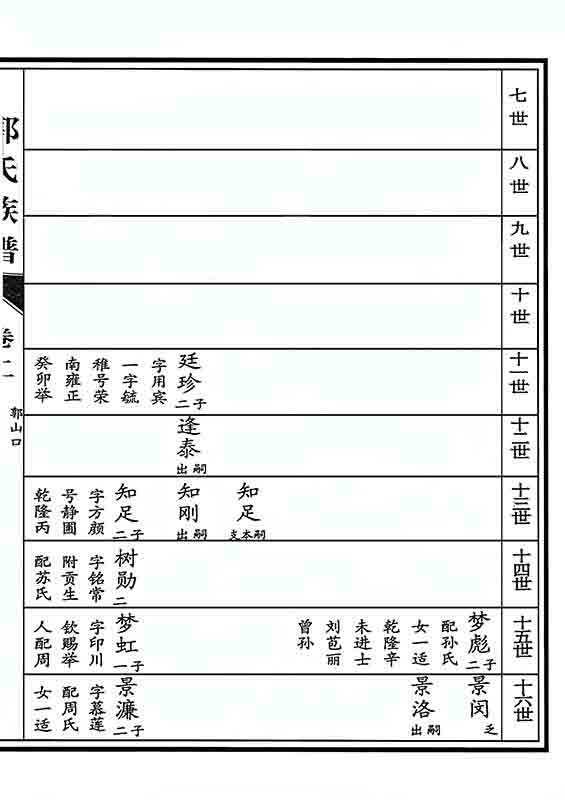 七世
八世
九世
十世
十一世
廷珍
二子
字用宾
一字毓
稚号荣
南雍正
癸卯举
十二世
逢泰
出嗣
十三世
知足
支本嗣
知刚
出嗣
知足
二子
字方颜
号静圃
乾隆丙
十四世
树勋
二
字铭常
附贡生
配苏氏
十五世
梦彪
二子
配孙氏
女一适
乾隆辛
未进士
刘苞丽
曾孙
梦虹
一子
字印川
钦赐举
人配周
十六世
景闵
乏
景洛
出嗣
景濂
二子
字慕莲
配周氏
女一适
氏族谱
卷二
郭山口